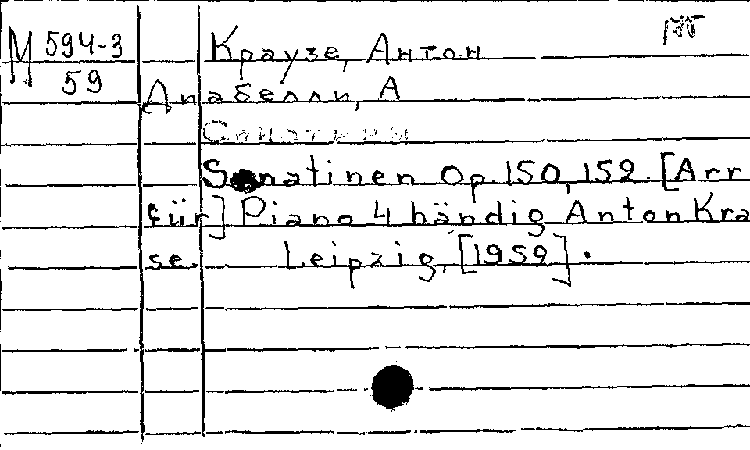 М 594-3
59
Краузе, Антон
Диабелли, А
Сонатины
Sonatinen Op. 150, 152. [Arr
für] Piano 4 händig Anton Kra
se. Leipzig, [1959].